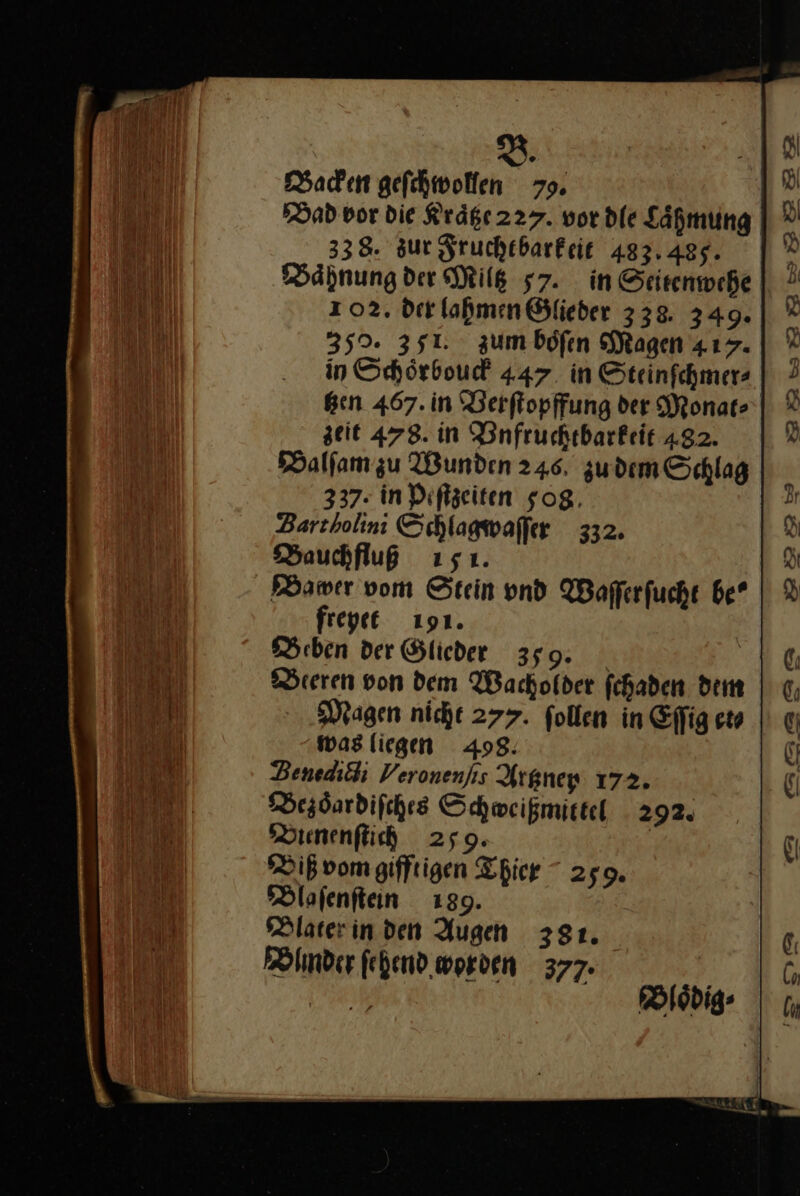 B.
Backen geſchwollen 79.
Bad vor die Kraͤtze 227. vor dle Laͤhmung
338. zur Fruchtbarkeit 483. 485.
Baͤhnung der Miltz 57. in Seitenwehe
102. der lahmen Glieder 338. 349.
350. 351. zum boͤſen Magen 417.
in Schoͤrbouck 447 in Steinſchmer⸗
tzen 467. in Verſtopffung der Monat⸗
zeit 478. in Vnfruchtbarkeit 482.
Balſam zu Wunden 246. zu dem Schlag
337. in Peſtzeiten 508.
Bartholini Schlagwaſſer 332.
Bauchfluß 151.
Bawer vom Stein vnd Waſſerſucht be⸗
freyet 191.
Beben der Glieder 359.
Beeren von dem Wacholder ſchaden dem
Magen nicht 277. ſollen in Eſſig et⸗
was liegen 498.
Benedicti Veronenſis Artzney 172.
Bezoͤardiſches Schweißmittel 292.
Bienenſtich 259.
Biß vom gifftigen Thier 259.
Blaſenſtein 189.
Blater in den Augen 381.
Blinder ſehend worden 377.
Bloͤdig⸗